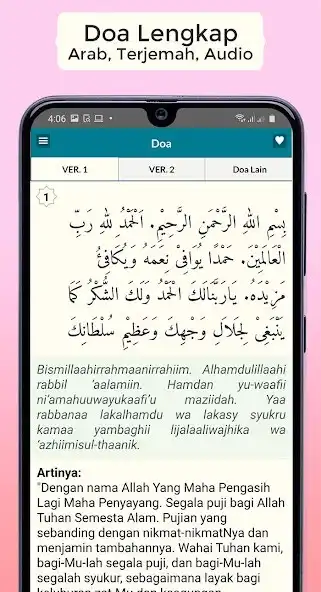 Doa Lengkap
Arab, Terjemah, Audio
4:06
Doa
VER. 1
VER. 2
Doa Lain
1
بِسْمِ اللهِ الرَّحْمَنِ الرَّحِيْمِ. اَلْحَمْدُ لِلهِ رَبِّ
الْعَالَمِيْنَ. حَمْدًا يُوَافِيْ نِعَمَهُ وَيُكَافِئُ
مَزِيْدَهُ. يَارَبَّنَالَكَ الْحَمْدُ وَلَكَ الشُّكْرُ كَمَا
يَنْبَغِيْ لِجَلَالِ وَجْهِكَ وَعَظِيْمِ سُلْطَانِكَ
Bismillaahirrahmaanirrahiim. Alhamdulillaahi
rabbil 'aalamiin. Hamdan yu-waafii
ni'amahuuwayukaafi'u maziidah. Yaa
rabbanaa lakalhamdu wa lakasy syukru
kamaa yambaghii lijalaaliwajhika wa
'azhiimisul-thaanik.
Artinya:
"Dengan nama Allah Yang Maha Pengasih
Lagi Maha Penyayang. Segala puji bagi Allah
Tuhan Semesta Alam. Pujian yang
sebanding dengan nikmat-nikmatNya dan
menjamin tambahannya. Wahai Tuhan kami,
bagi-Mu-lah segala puji, dan bagi-Mu-lah
segalah syukur, sebagaimana layak bagi